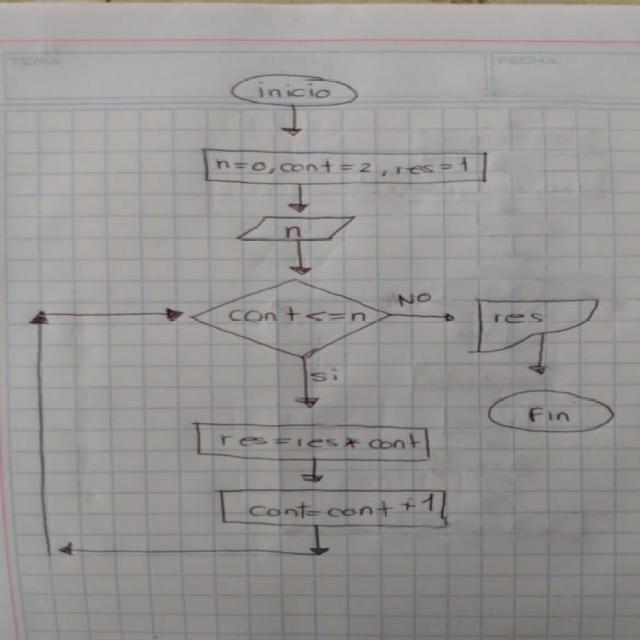 TEMA
FECHA
inicio
n=0, cont=2, res=1
n
cont <=n
NO
res
si
Fin
res=res*cont
cont=cont+1